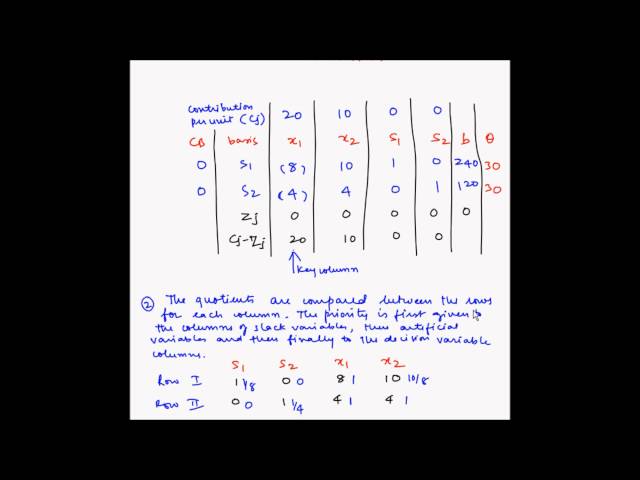 contribution
per unit (Cj) 20 10 0 0
CB basis x1 x2 s1 s2 b θ
0 s1 (8) 10 1 0 240 30
0 s2 (4) 4 0 1 120 30
Zj 0 0 0 0 0
Cj-Zj 20 10 0 0
↑ Key column
② The quotients are compared between the rows
for each column. The priority is first given to
the columns of slack variables, then artificial
variables and then finally to the decision variable
columns.
s1 s2 x1 x2
Row I 1 1/8 0 0 8 1 10 10/8
Row II 0 0 1 1/4 4 1 4 1